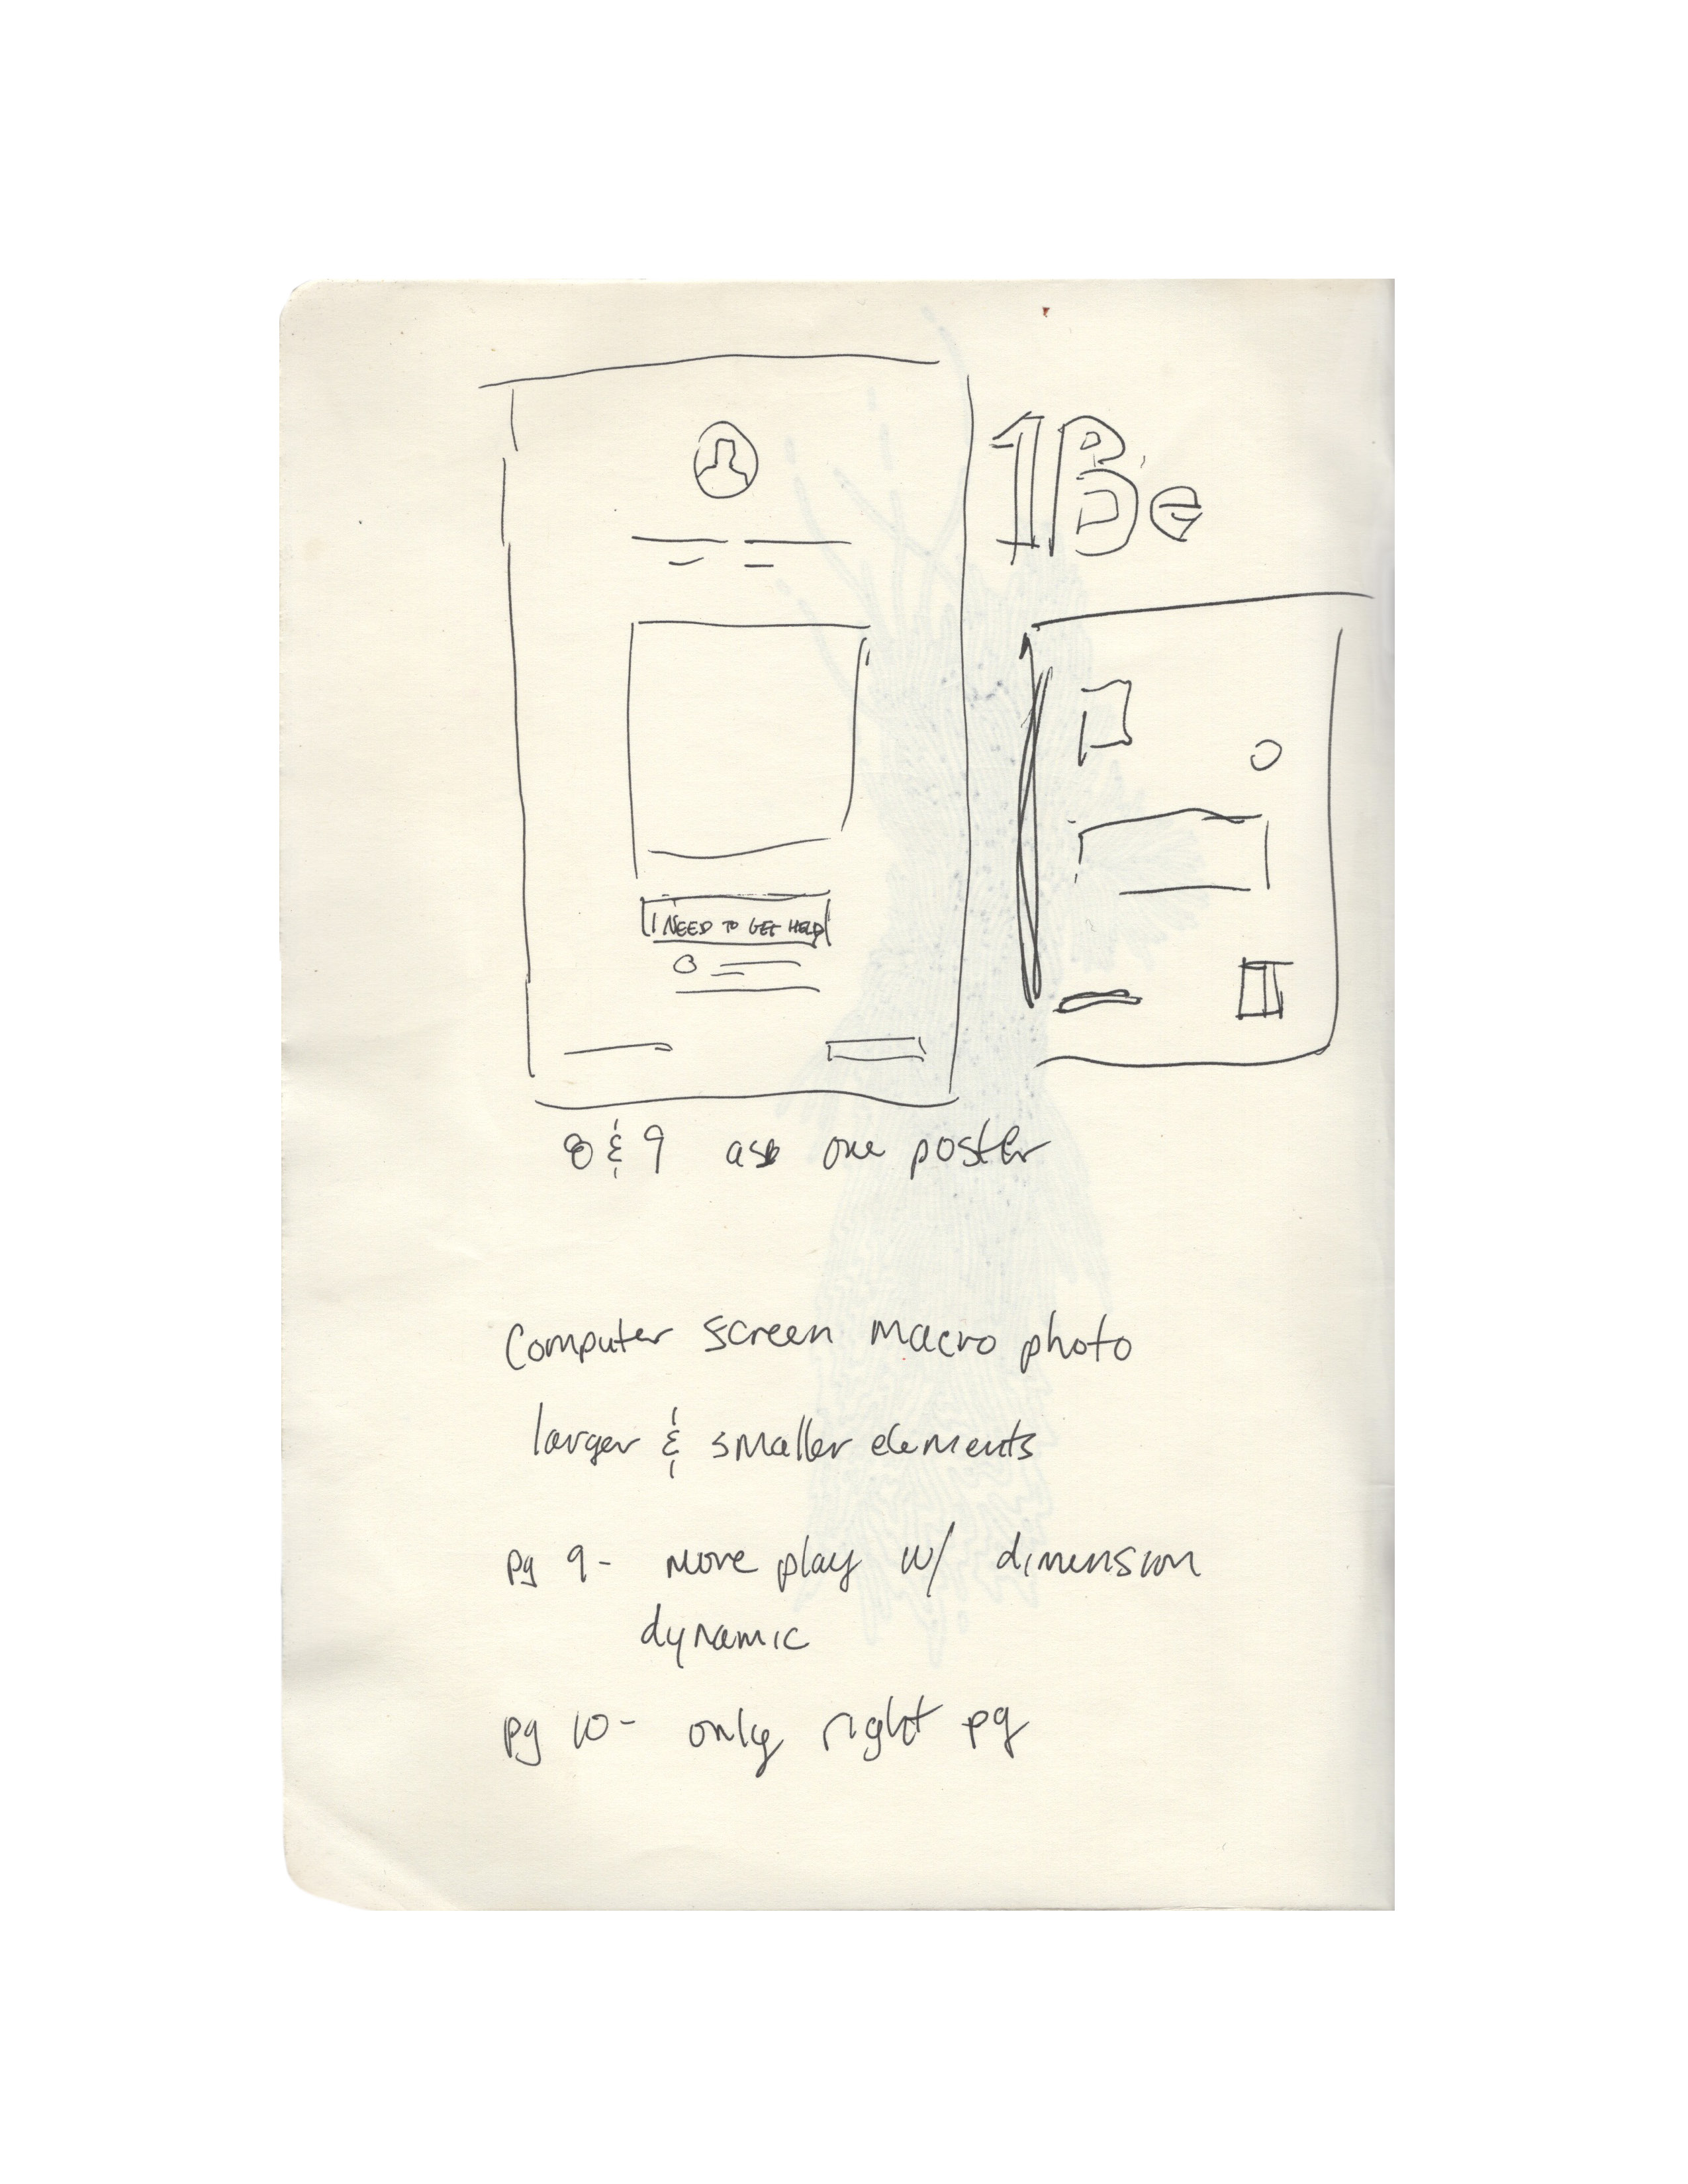 1Be
I NEED TO GET HELP
8 & 9 as one poster
Computer screen macro photo
larger & smaller elements
pg 9- more play w/ dimension
dynamic
pg 10- only right pg